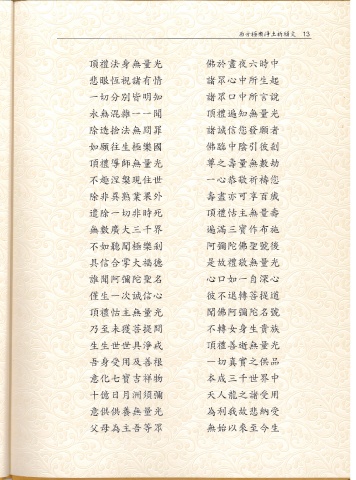 西方極樂淨土祈願文 13
頂禮法身無量光 佛於晝夜六時中
悲眼恆視諸有情 諸眾心中所生起
一切分別皆明知 諸眾口中所言說
永無混雜一一聞 頂禮遍知無量光
除造捨法無間罪 諸誠信您發願者
如願往生極樂國 佛臨中陰引彼剎
頂禮導師無量光 尊之壽量無數劫
不趣涅槃現住世 一心恭敬祈禱您
除非異熟業果外 壽盡亦可享百歲
遣除一切非時死 頂禮怙主無量壽
無數廣大三千界 遍滿三寶作布施
不如聽聞極樂剎 阿彌陀佛聖號後
具信合掌大福德 是故禮敬無量光
誰聞阿彌陀聖名 心口如一自深心
僅生一次誠信心 彼不退轉菩提道
頂禮怙主無量光 聞佛阿彌陀名號
乃至未獲菩提間 不轉女身生貴族
生生世世具淨戒 頂禮善逝無量光
吾身受用及善根 一切真實之供品
意化七寶吉祥物 本成三千世界中
十億日月洲須彌 天人龍之諸受用
意供供養無量光 為利我故悲納受
父母為主吾等眾 無始以來至今生